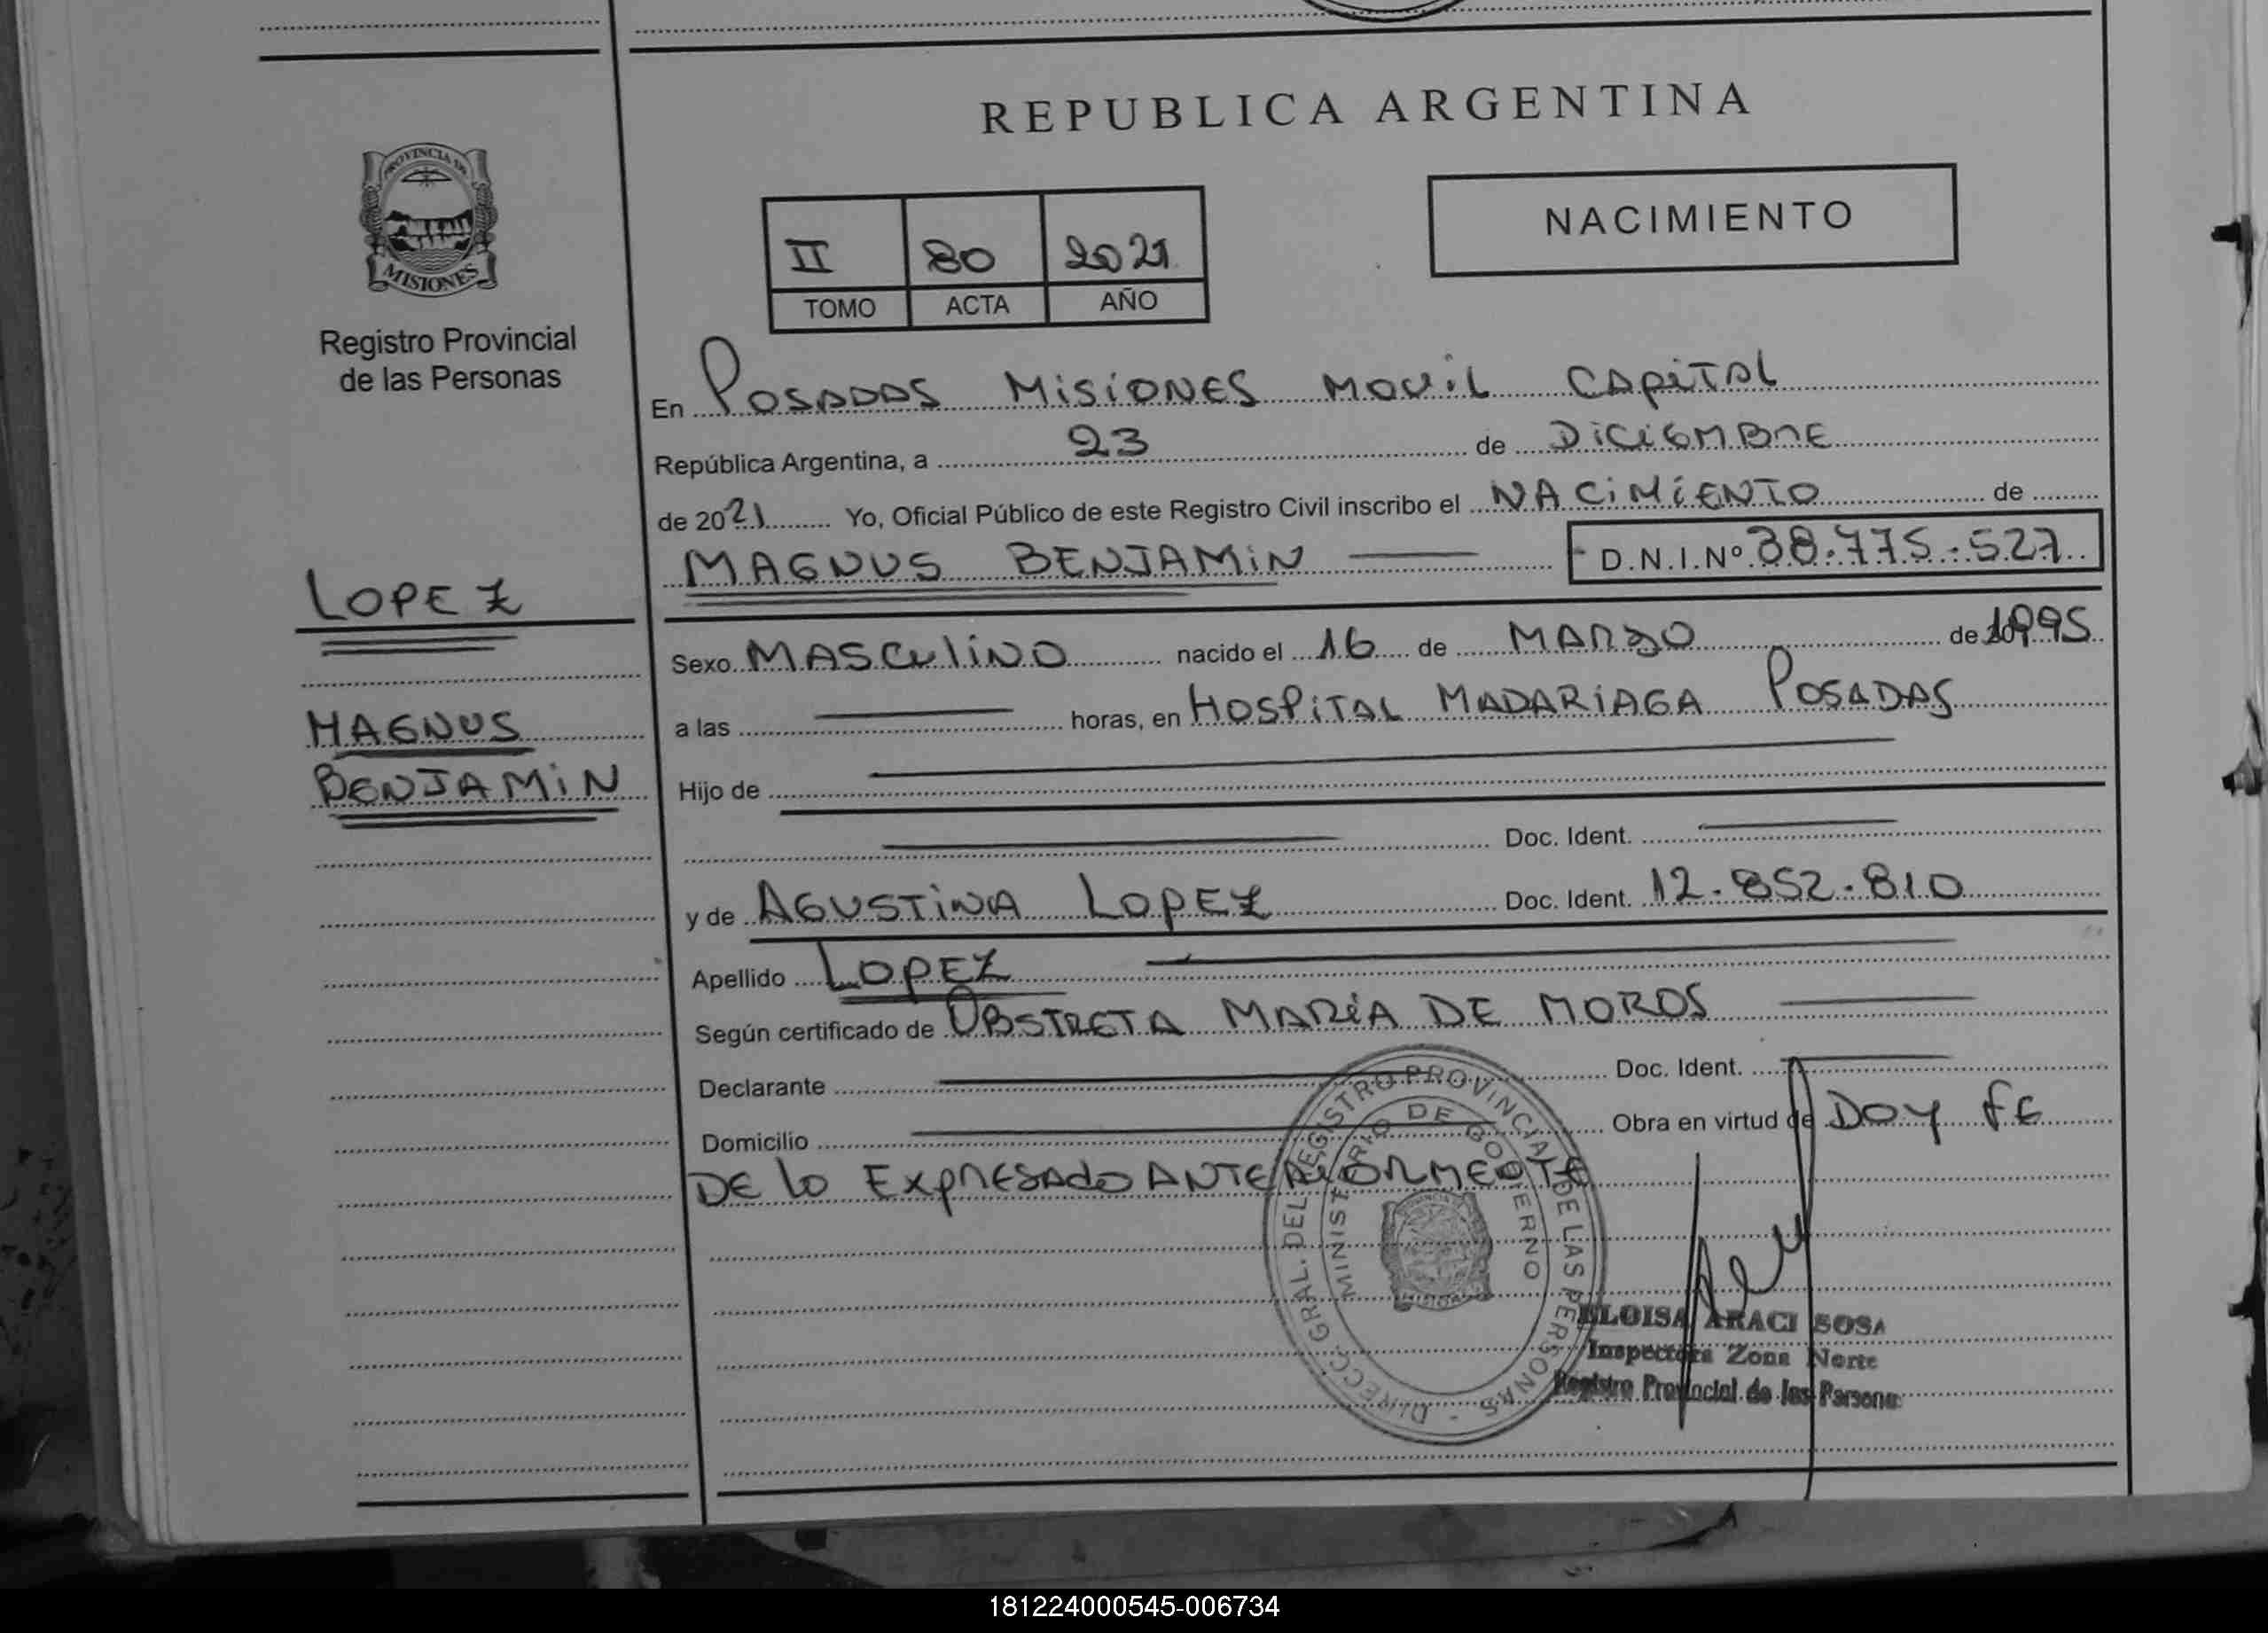 REPUBLICA ARGENTINA
PROVINCIA DE
MISIONES
Registro Provincial
de las Personas
NACIMIENTO
II 80 2021
TOMO ACTA AÑO
En Posadas Misiones Movil Capital
República Argentina, a 23 de Diciembre
de 2021 Yo, Oficial Público de este Registro Civil inscribo el NACIMIENTO de
MAGNUS BENJAMIN D.N.I.Nº 38.775.527
LOPEZ
MAGNUS
BENJAMIN
Sexo MASCULINO nacido el 16 de MARZO de 1995
a las horas, en HOSPITAL MADARIAGA POSADAS
Hijo de
Doc. Ident.
y de AGUSTINA LOPEZ Doc. Ident. 12.852.810
Apellido LOPEZ
Según certificado de OBSTRETA MARÍA DE MOROS
Declarante Doc. Ident.
Domicilio Obra en virtud de DOY FE
DE LO EXPRESADO ANTERIORMENTE
DIRECC. GRAL. DEL REGISTRO PROVINCIAL DE LAS PERSONAS -
MINISTERIO DE GOBIERNO
MISIONES
ELOISA ARACI SOSA
Inspectora Zona Norte
Registro Provincial de las Personas
181224000545-006734